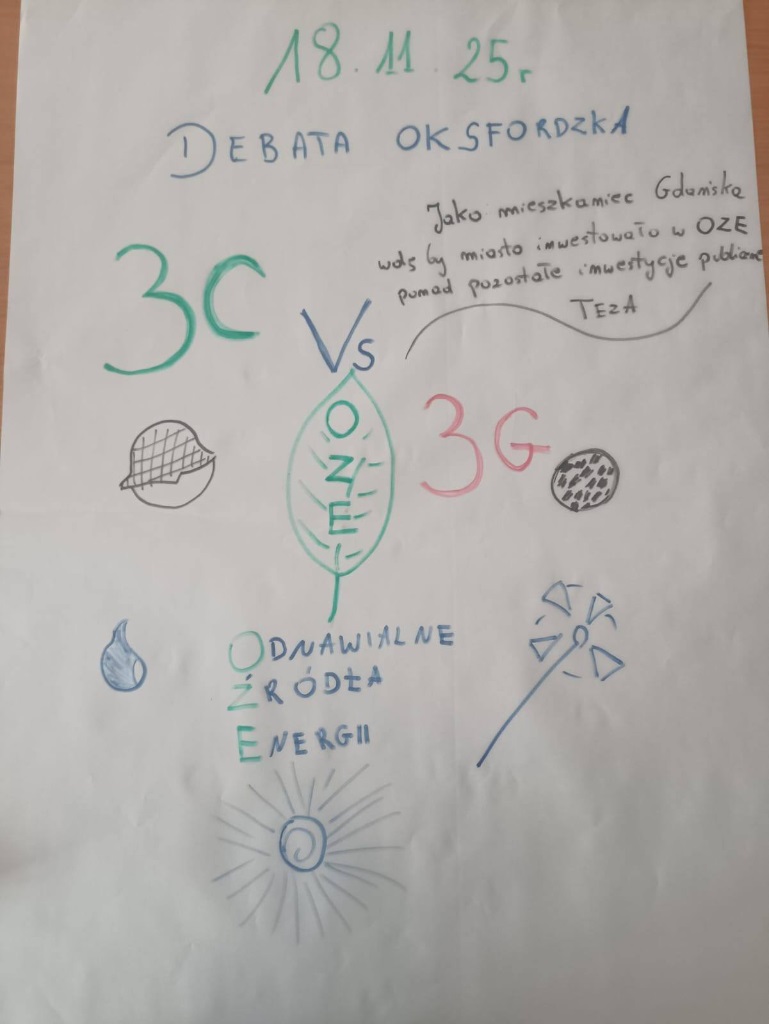 18.11.25r
DEBATA OKSFORDZKA
Jako mieszkaniec Gdańska
by miasto inwestowało w OZE
ponad pozostałe inwestycje publiczne
TEZA
3C
Vs
3G
OZE
ODNAWIALNE
ŹRÓDŁA
ENERGII